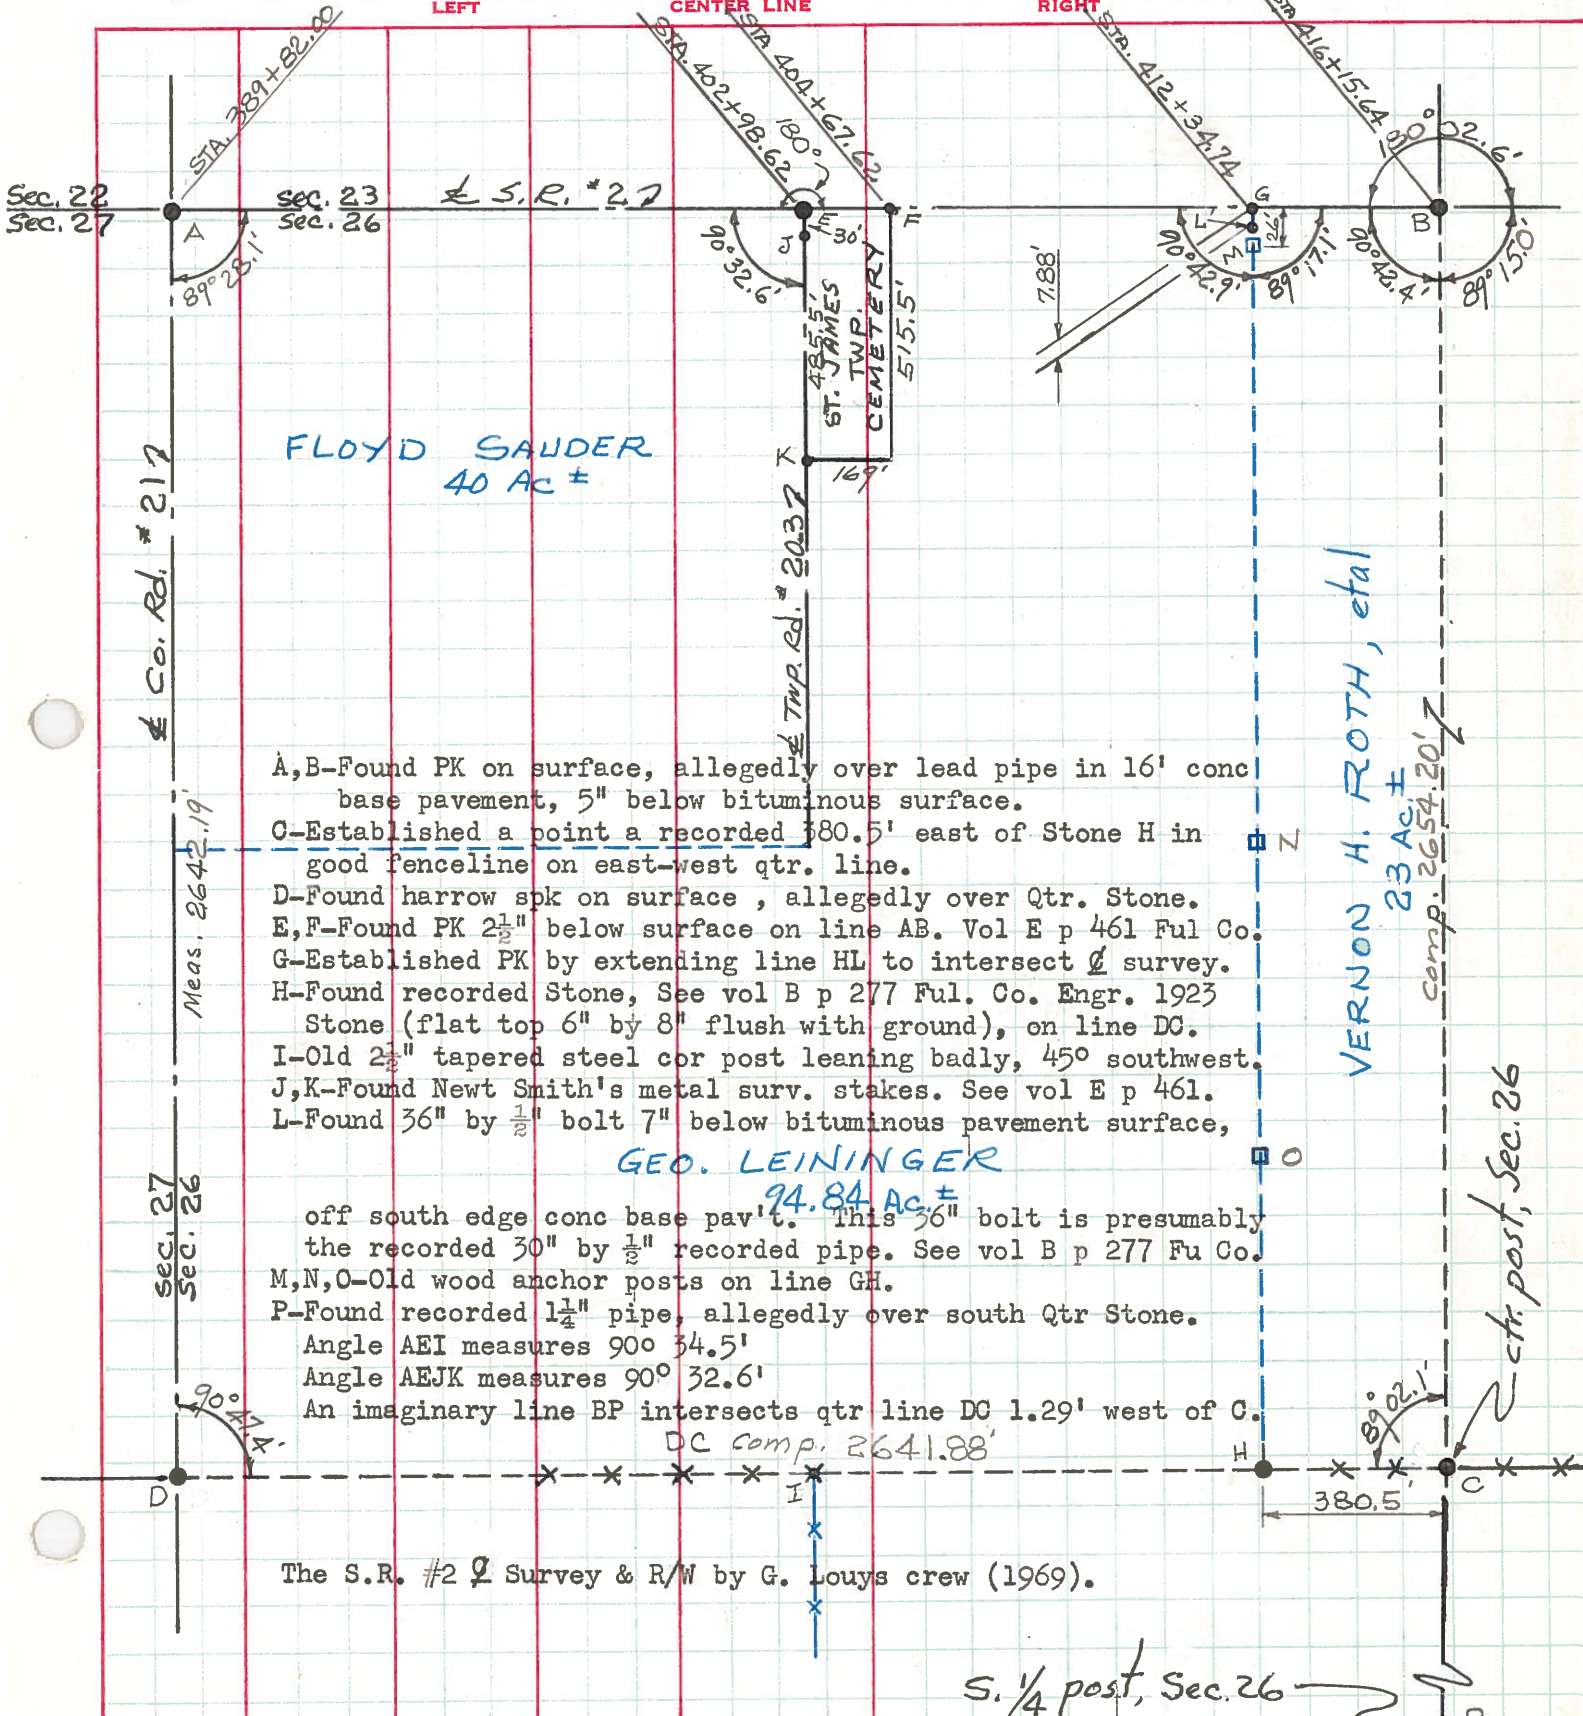 LEFT
CENTER LINE
RIGHT
STA. 389+82.00
STA. 402+98.62
STA 404+67.62
STA. 412+34.74
STA 416+15.64
180°
180° 02.6'
Sec. 22
Sec. 27
sec. 23
Sec. 26
℄ S.R. #2
A
E
F
G
B
J
30'
L
26'
M
89° 28.1'
90° 32.6'
90° 42.9'
89° 17.1'
90° 42.4'
89° 15.0'
7.88'
485.5'
ST. JAMES
TWP.
CEMETERY
515.5'
K
169'
FLOYD SAUDER
40 Ac ±
℄ Co. Rd. #21
℄ Twp. Rd. #20.3
VERNON H. ROTH, etal
23 Ac. ±
Comp. 2654.20'
Meas. 2642.19'
A,B-Found PK on surface, allegedly over lead pipe in 16' conc
base pavement, 5" below bituminous surface.
C-Established a point a recorded 380.5' east of Stone H in
good fenceline on east-west qtr. line.
N
D-Found harrow spk on surface , allegedly over Qtr. Stone.
E,F-Found PK 2½" below surface on line AB. Vol E p 461 Ful Co.
G-Established PK by extending line HL to intersect ℄ survey.
H-Found recorded Stone, See vol B p 277 Ful. Co. Engr. 1923
Stone (flat top 6" by 8" flush with ground), on line DC.
I-Old 2½" tapered steel cor post leaning badly, 45° southwest.
J,K-Found Newt Smith's metal surv. stakes. See vol E p 461.
L-Found 36" by ½" bolt 7" below bituminous pavement surface,
GEO. LEININGER
94.84 Ac. ±
O
off south edge conc base pav't. This 36" bolt is presumably
the recorded 30" by ½" recorded pipe. See vol B p 277 Fu Co.
M,N,O-Old wood anchor posts on line GH.
P-Found recorded 1¼" pipe, allegedly over south Qtr Stone.
Angle AEI measures 90o 34.5'
Angle AEJK measures 90° 32.6'
An imaginary line BP intersects qtr line DC 1.29' west of C.
Sec. 27
Sec. 26
ctr. post, Sec. 26
90° 47.4'
89° 02.1'
DC Comp. 2641.88'
D
I
H
C
380.5'
The S.R. #2 ℄ Survey & R/W by G. Louys crew (1969).
S. 1/4 post, Sec. 26